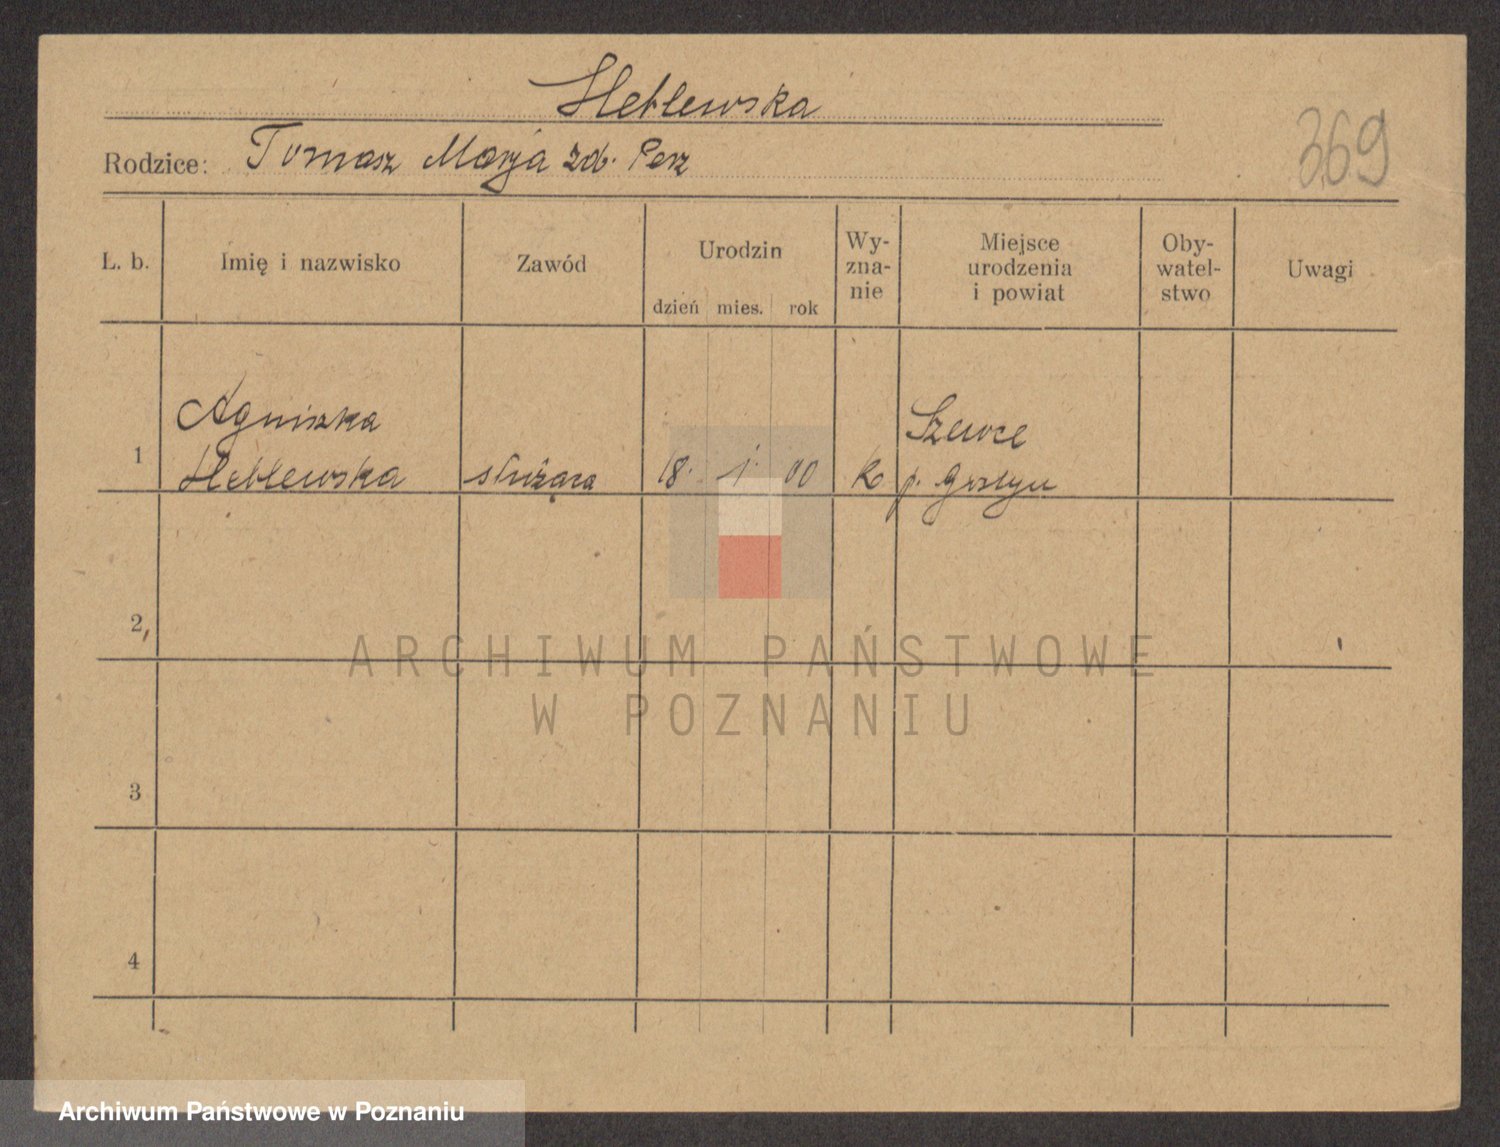 Heblewska
369
Rodzice: Tomasz Marja zd. Perz
L. b.
Imię i nazwisko
Zawód
Urodzin
dzień mies. rok
Wy-
zna-
nie
Miejsce
urodzenia
i powiat
Oby-
watel-
stwo
Uwagi
1
Agniszka
Heblewska
służąca
18. 1. 00
k
Szewce
p. Gostyn
2,
3
4
ARCHIWUM PAŃSTWOWE
W POZNANIU
Archiwum Państwowe w Poznaniu